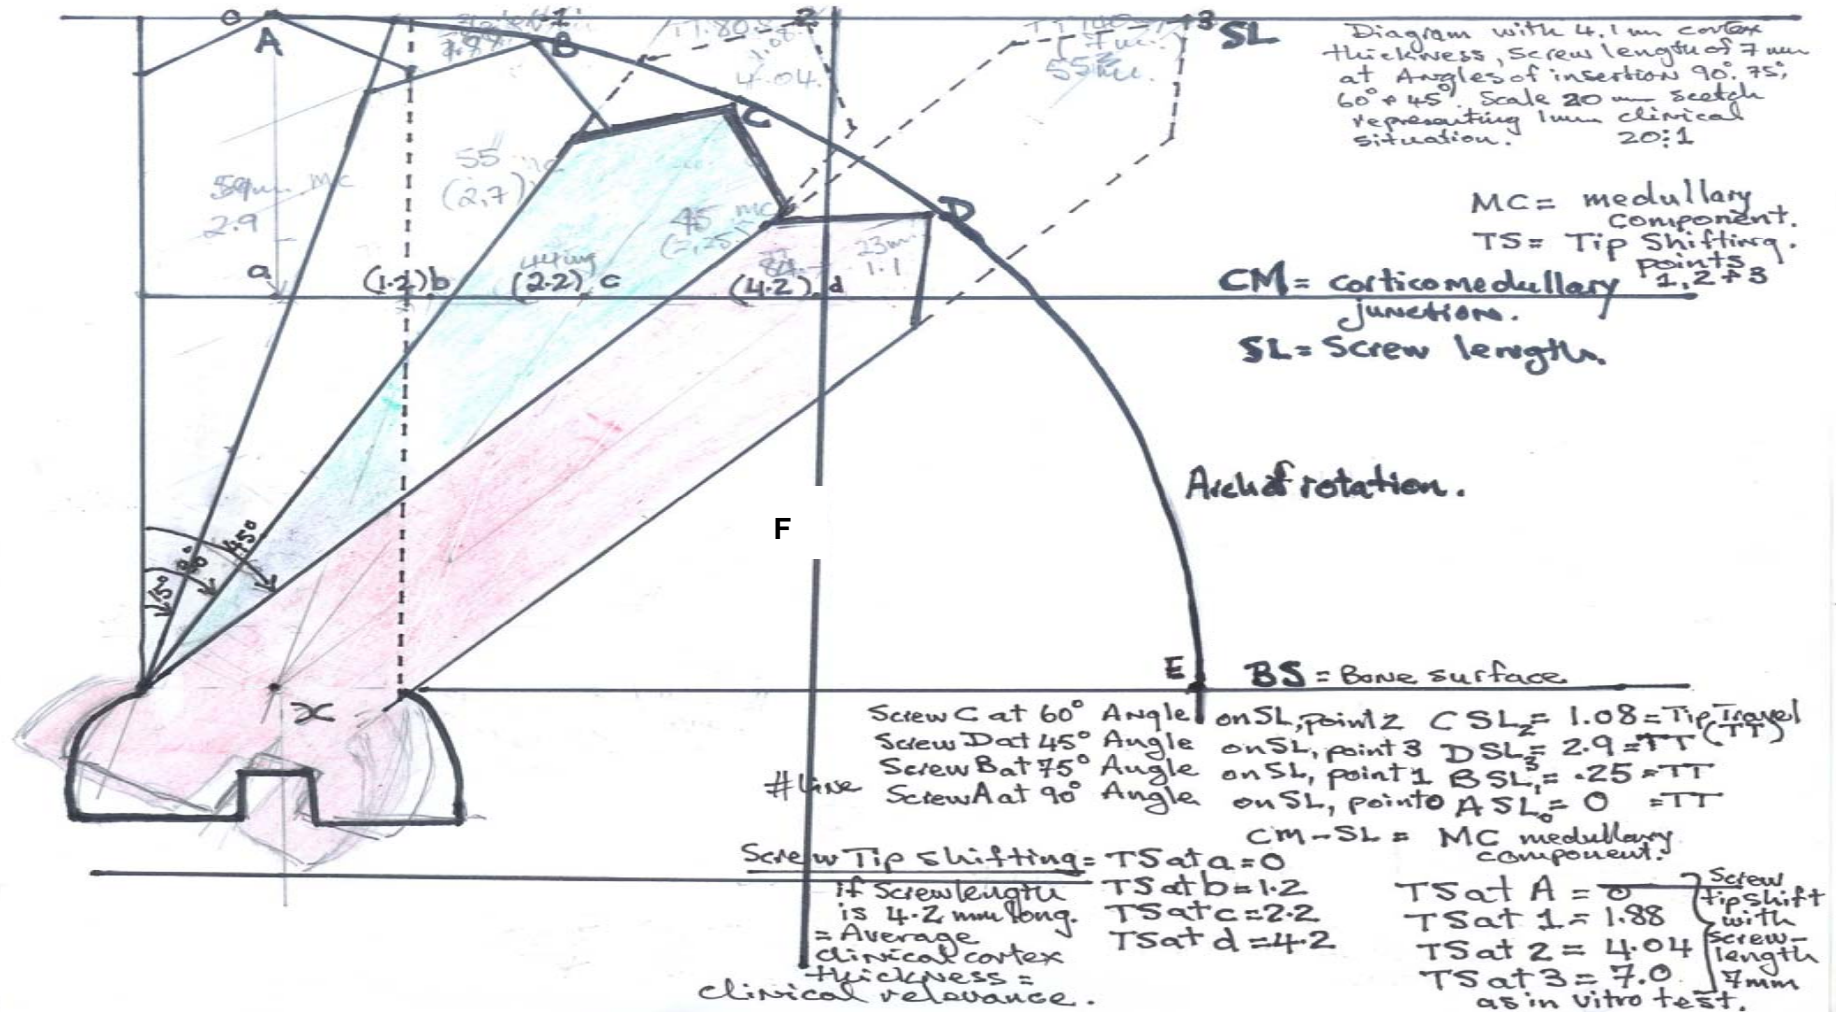 0
A
1
B
2
3
SL
TT.80
1.08
4.04
TT 140
55
C
D
59m. mc
2.9
55
(2,7)
45 mc
23m.
1.1
a
(1.2) b
(2.2) c
(4.2) d
15°
30°
45°
x
F
E
Diagram with 4.1 mm cortex
thickness, screw length of 7 mm
at Angles of insertion 90°. 75°,
60° + 45°. Scale 20 mm scetch
representing 1mm clinical
situation. 20:1
MC = medullary
component.
TS = Tip Shifting.
points
1, 2 + 3
CM = corticomedullary
junction.
SL = Screw length.
Arch of rotation.
BS = Bone surface
Screw C at 60° Angle on SL, point 2 CSL2 = 1.08 = Tip Travel
(TT)
Screw D at 45° Angle on SL, point 3 DSL3 = 2.9 = TT
Screw B at 75° Angle on SL, point 1 BSL1 = .25 = TT
Screw A at 90° Angle on SL, point 0 ASL0 = 0 = TT
# Line
CM - SL = MC medullary
component.
Screw Tip shifting = TS at a = 0
if Screw length TS at b = 1.2
is 4.2 mm long. TS at c = 2.2
= Average TS at d = 4.2
clinical cortex
thickness =
clinical relevance.
TS at A = 0
TS at 1 = 1.88
TS at 2 = 4.04
TS at 3 = 7.0
Screw
tip shift
with
screw-
length
7mm
as in vitro test.